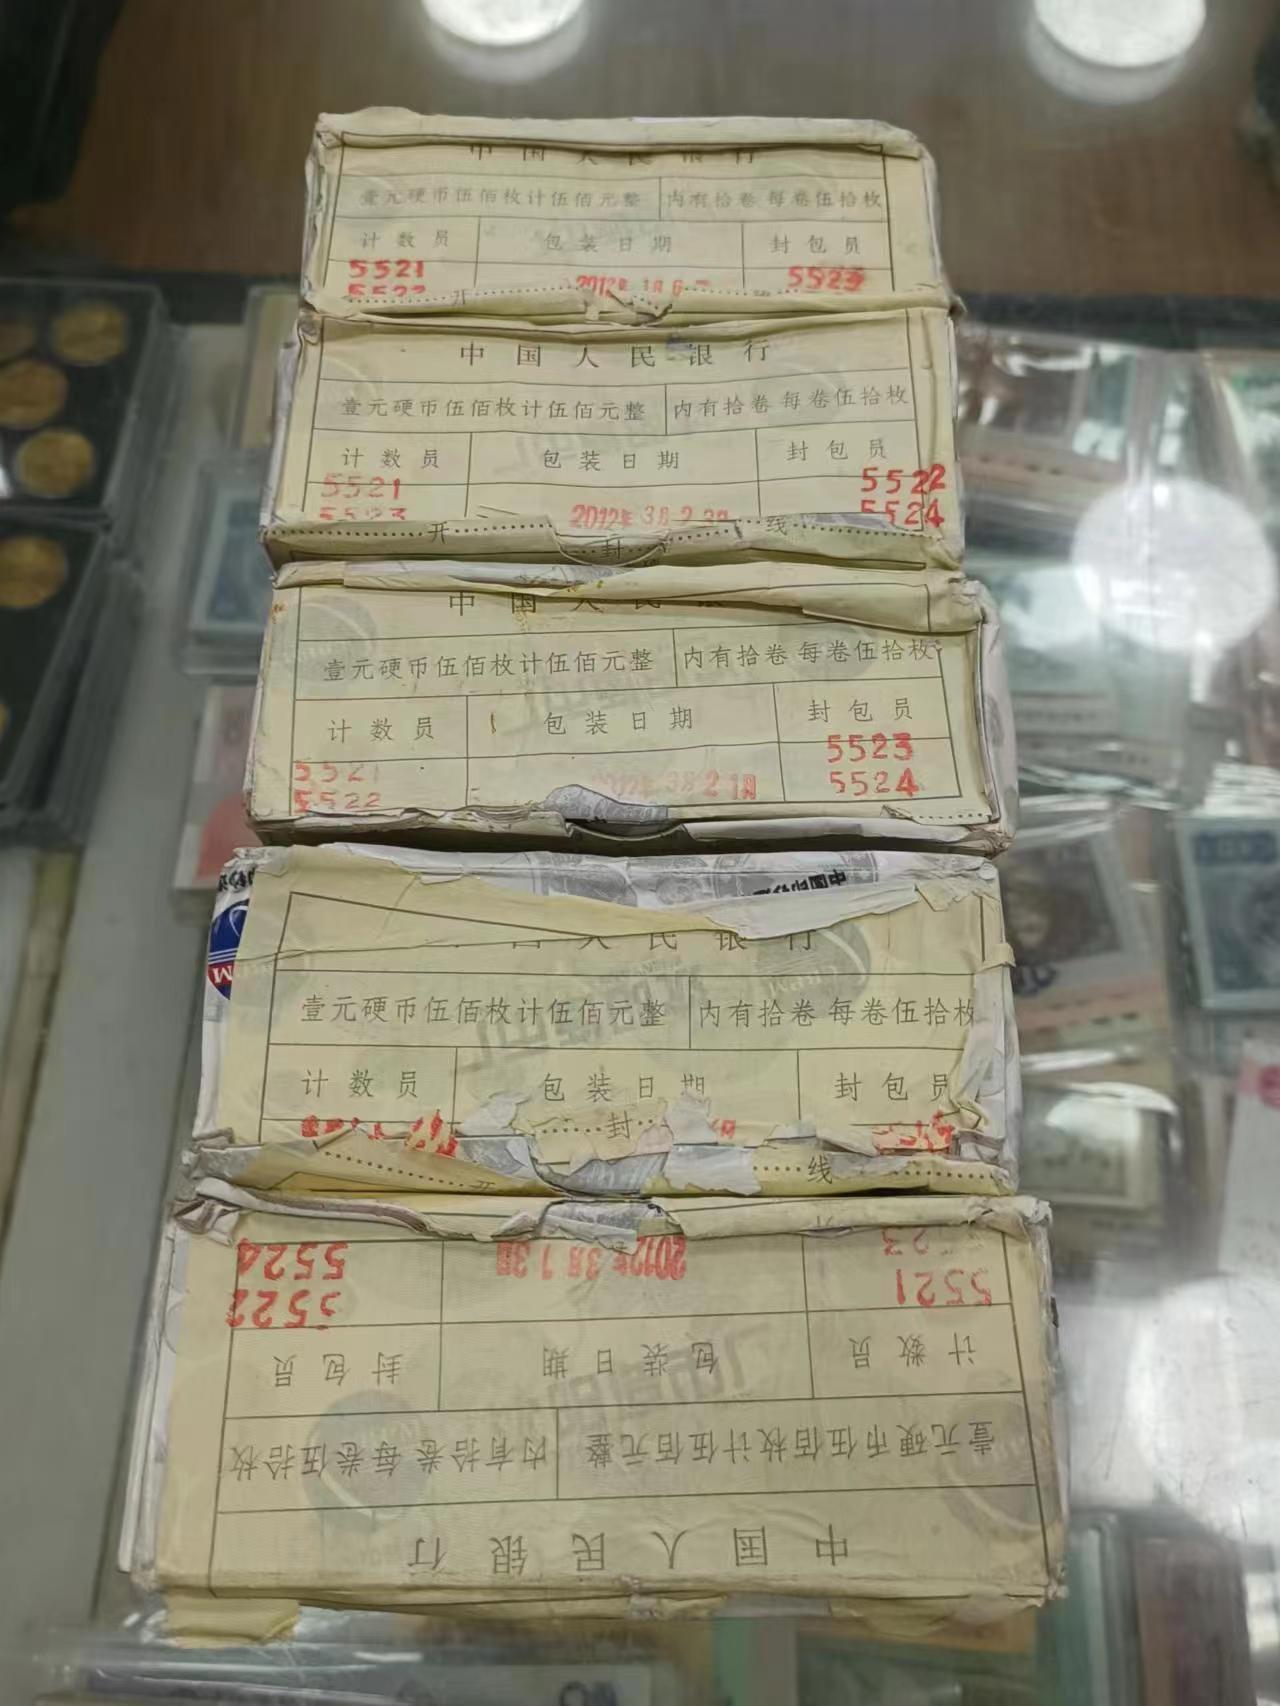 中国人民银行
壹元硬币伍佰枚计伍佰元整 内有拾卷 每卷伍拾枚
计数员 包装日期 封包员
5521 5523
5522 开 2012年
中国人民银行
壹元硬币伍佰枚计伍佰元整 内有拾卷 每卷伍拾枚
计数员 包装日期 封包员
5521 5522
5523 2012年3月2日 5524
开 封 线
中国人民银
壹元硬币伍佰枚计伍佰元整 内有拾卷 每卷伍拾枚
计数员 包装日期 封包员
5521 5523
5522 2012年3月21日 5524
国人民银行
壹元硬币伍佰枚计伍佰元整 内有拾卷 每卷伍拾枚
计数员 包装日期 封包员
封
开 线
中国人民银行
壹元硬币伍佰枚计伍佰元整 内有拾卷 每卷伍拾枚
计数员 包装日期 封包员
5521 5522
23 2012年3月1日 5524